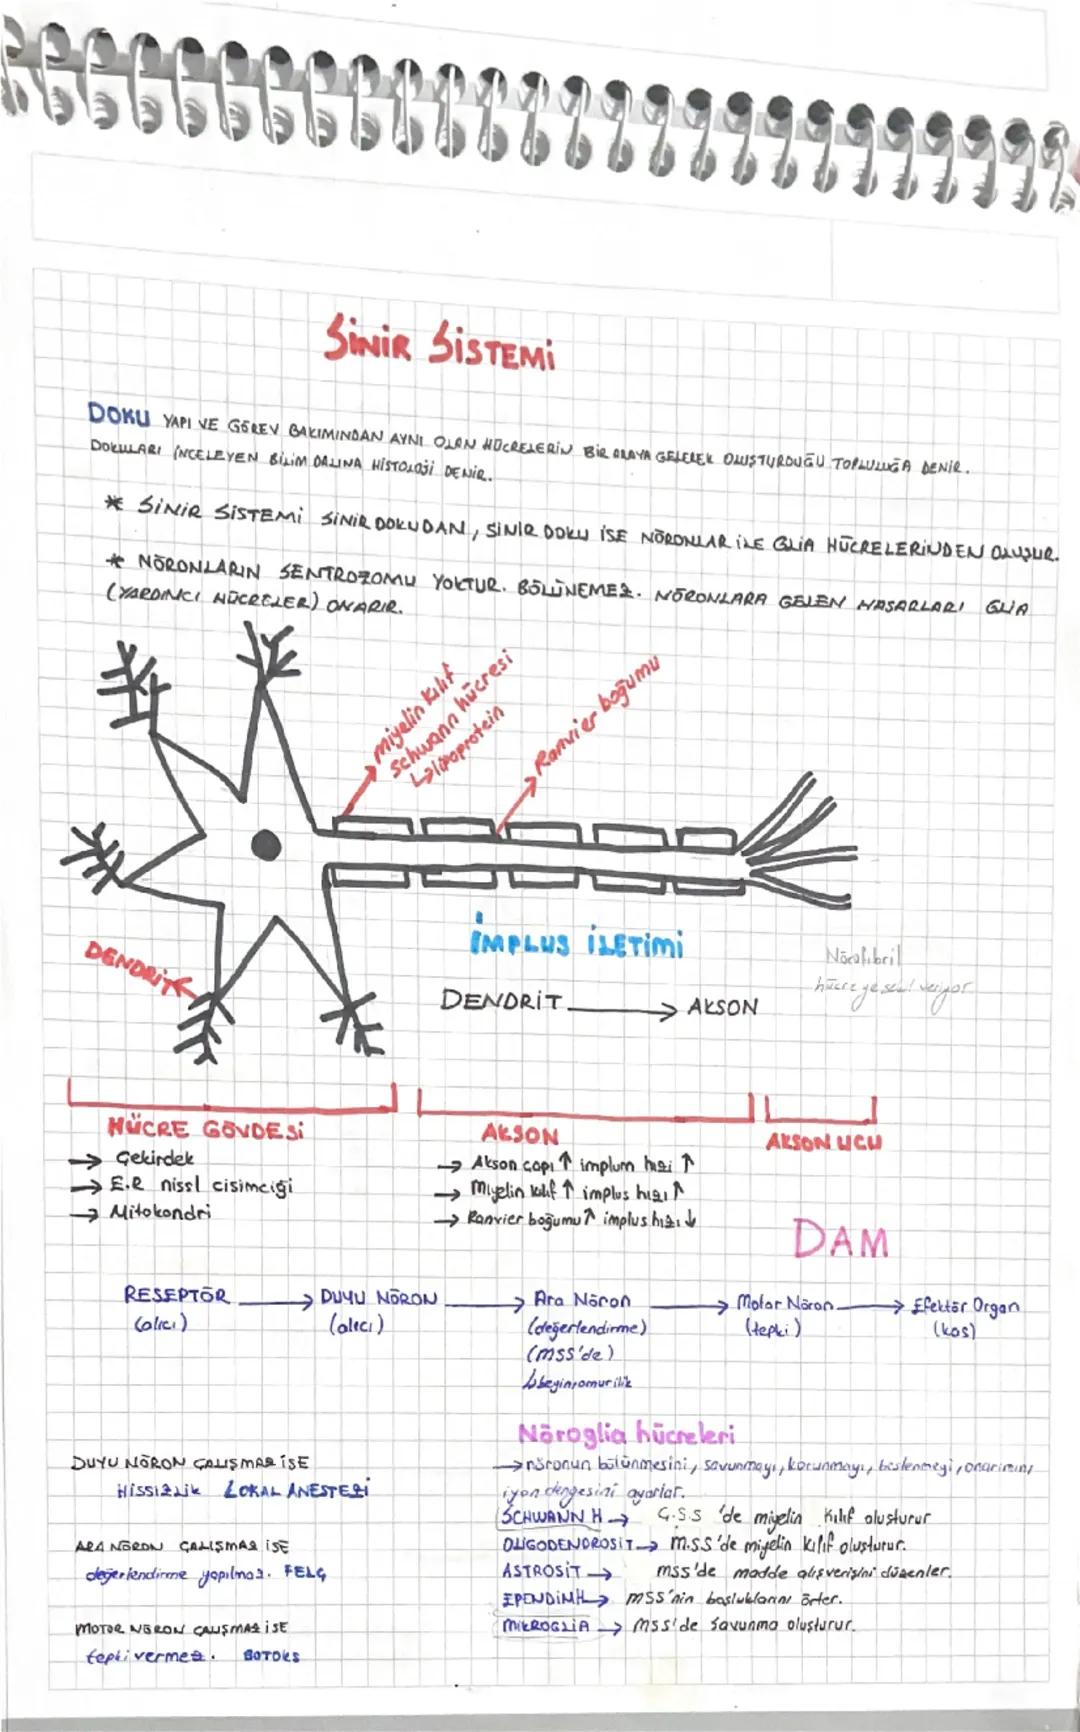 SİNİR SİSTEMİ
DOKU YAPI VE GÖREV BAKIMINDAN AYNI OLAN HÜCRELERİN BİR ARAYA GELEREK OLUŞTURDUĞU TOPLULUĞA DENİR.
DOKULARI İNCELEYEN BİLİM DALINA HİSTOLOJİ DENİR.
* SİNİR SİSTEMİ SİNİR DOKUDAN, SİNİR DOKU İSE NÖRONLAR İLE GLİA HÜCRELERİNDEN OLUŞUR.
* NÖRONLARIN SENTROZOMU YOKTUR. BÖLÜNEMEZ. NÖRONLARA GELEN HASARLARI GLİA
(YARDIMCI HÜCRELER) ONARIR.
miyelin kılıf
schwann hücresi
↳ lipoprotein
Ranvier boğumu
DENDRİT
İMPLUS İLETİMİ
DENDRİT → AKSON
Nörofibril
hücreye şekil veriyor
HÜCRE GÖVDESİ
→ Çekirdek
→ E.R nissl cisimciği
→ Mitokondri
AKSON
→ Akson çapı ↑ implum hızı ↑
→ Miyelin kılıf ↑ implus hızı ↑
→ Ranvier boğumu ↑ implus hızı ↓
AKSON UCU
DAM
RESEPTÖR → DUYU NÖRON → Ara Nöron → Motor Nöron → Efektör Organ
(alıcı) (alıcı) (değerlendirme) (tepki) (kas)
(MSS'de)
↳ beyin, omurilik
Nöroglia hücreleri
→ nöronun bölünmesini, savunmayı, korunmayı, beslenmeyi, onarımını,
iyon dengesini ayarlar.
SCHWANN H → Ç.S.S 'de miyelin kılıf oluşturur
OLİGODENDROSİT → M.SS'de miyelin kılıf oluşturur.
ASTROSİT → MSS'de madde alışverişini düzenler.
EPENDİM H → MSS'nin boşluklarını örter.
MİKROGLİA → MSS'de savunma oluşturur.
DUYU NÖRON ÇALIŞMAZ İSE
HİSSİZLİK LOKAL ANESTEZİ
ARA NÖRON ÇALIŞMAZ İSE
değerlendirme yapılmaz. FELÇ
MOTOR NÖRON ÇALIŞMAZ İSE
tepki vermez. BOTOKS